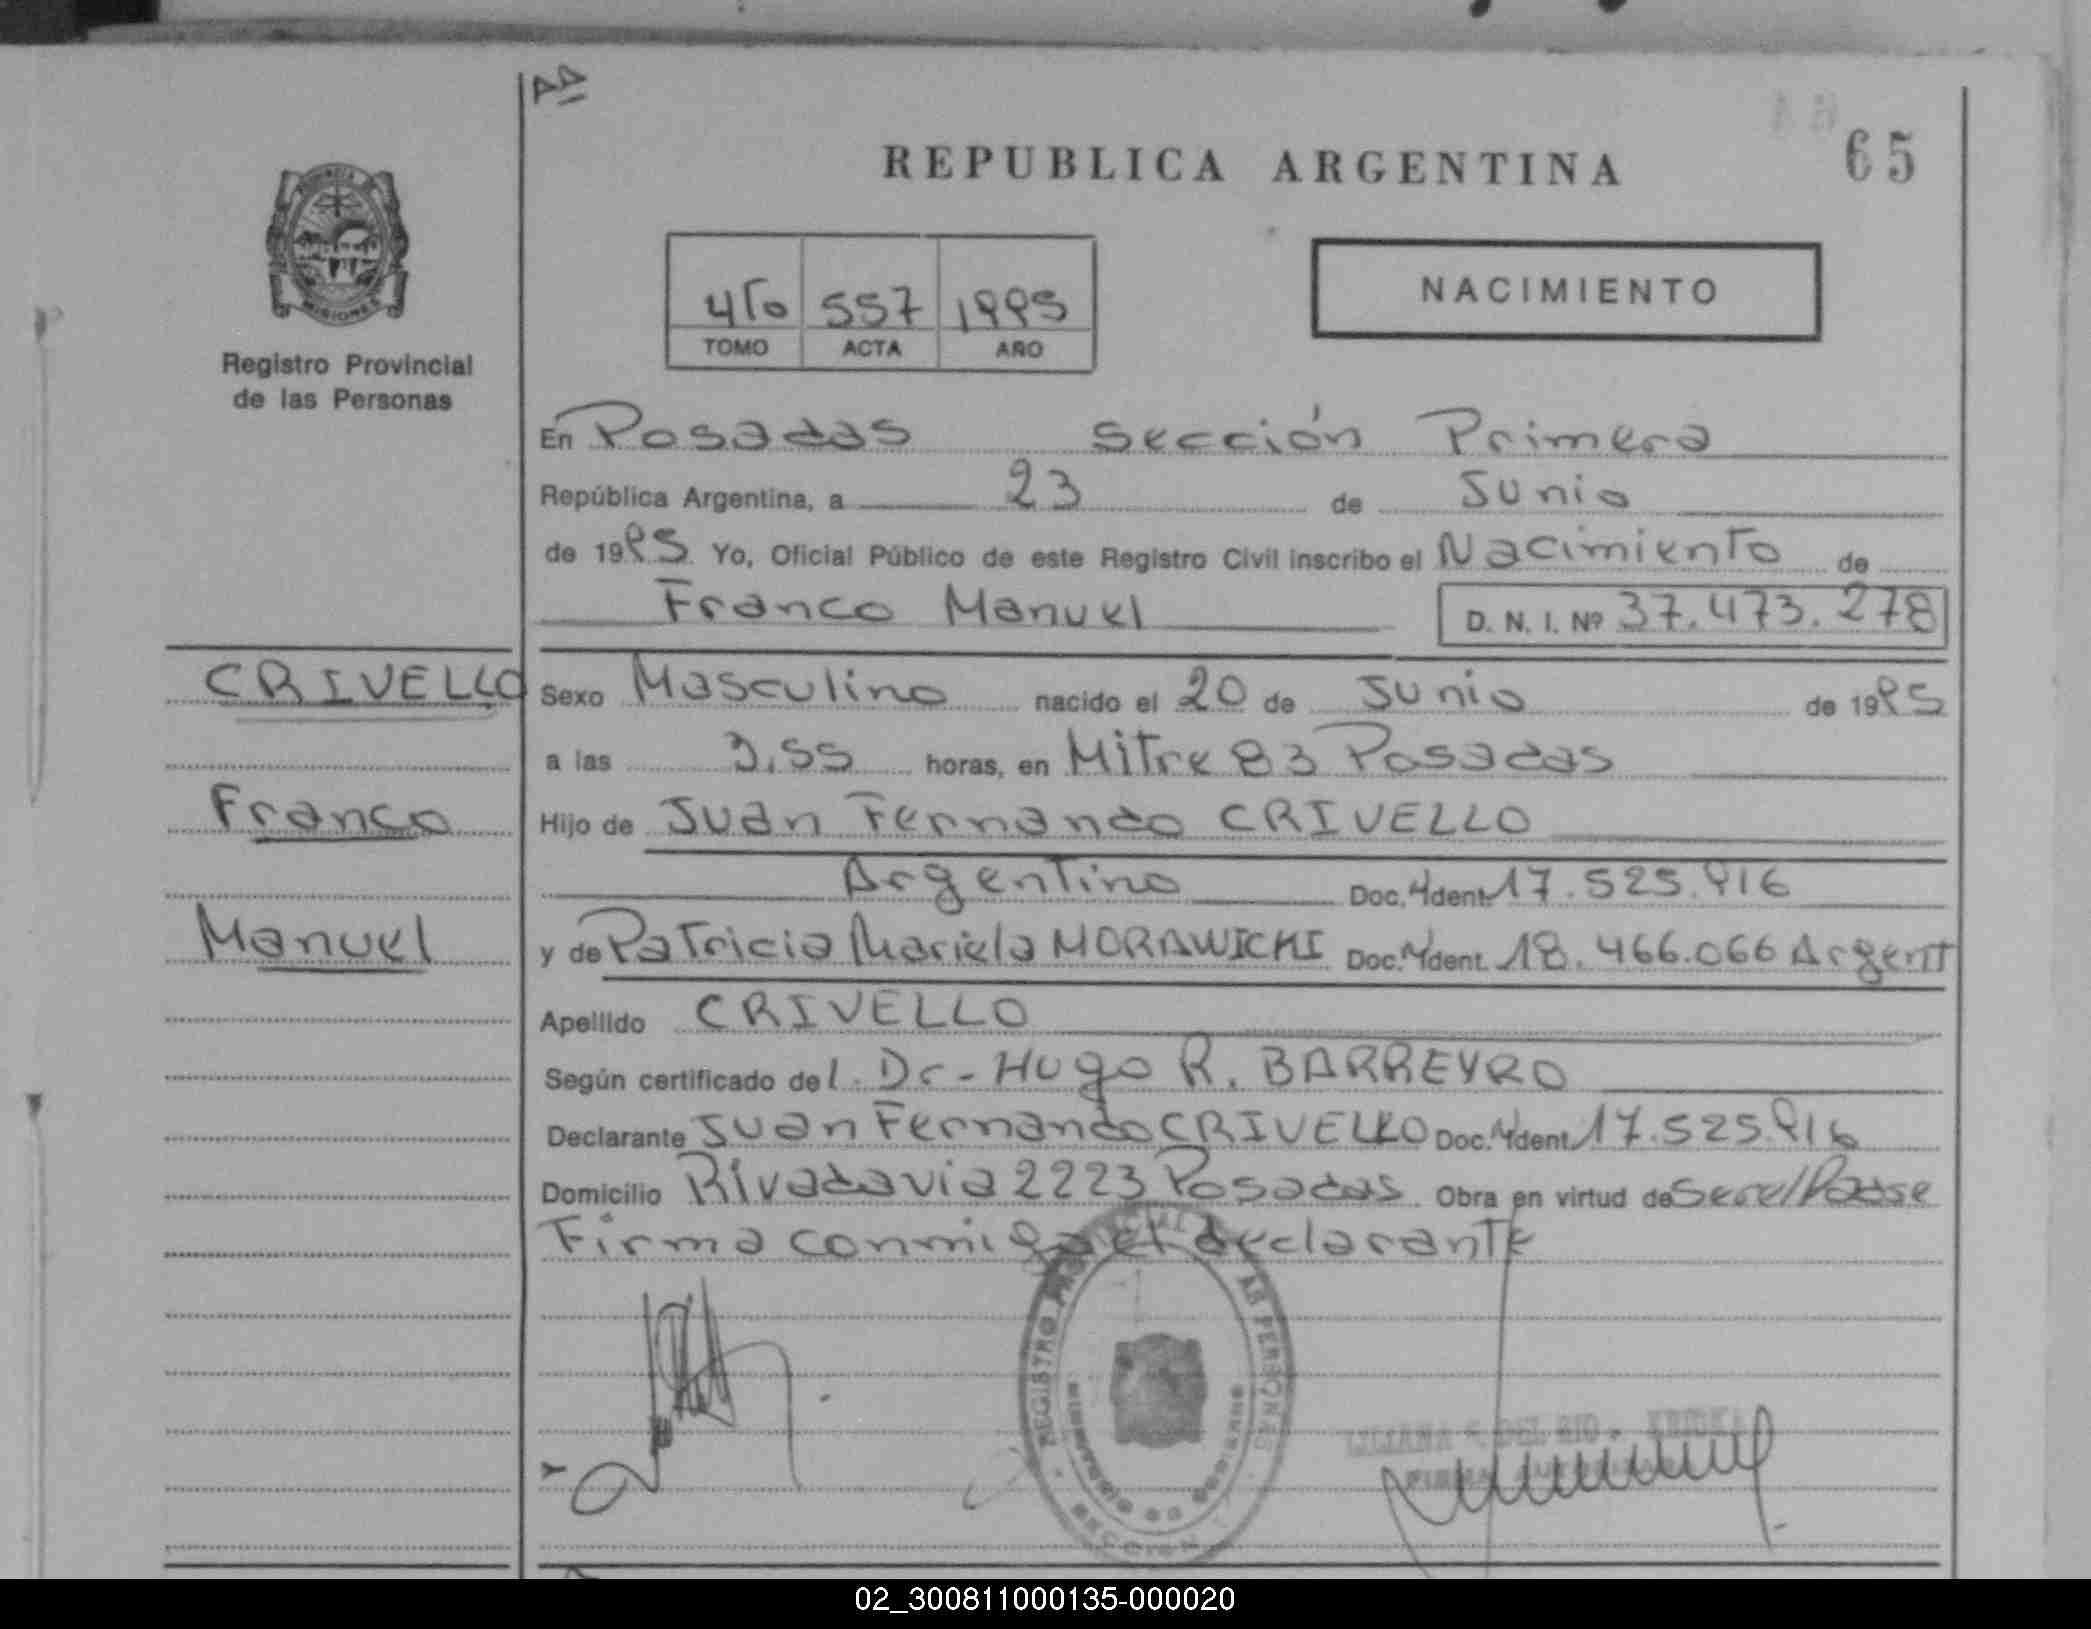 65
REPUBLICA ARGENTINA
PROVINCIA DE
MISIONES
Registro Provincial
de las Personas
4to 557 1995
TOMO ACTA AÑO
NACIMIENTO
En Posadas Sección Primera
República Argentina, a 23 de Junio
de 1995 Yo, Oficial Público de este Registro Civil inscribo el Nacimiento de
Franco Manuel D. N. I. Nº 37.473.278
CRIVELLO
Franco
Manuel
Sexo Masculino nacido el 20 de Junio de 1995
a las 3,55 horas, en Mitre 83 Posadas
Hijo de Juan Fernando CRIVELLO
Argentino Doc. Ident. 17.525.916
y de Patricia Mariela MORAWICKI Doc. Ident. 18.466.066 Argent
Apellido CRIVELLO
Según certificado del. Dr. Hugo R. BARREYRO
Declarante Juan Fernando CRIVELLO Doc. Ident. 17.525.916
Domicilio Rivadavia 2223 Posadas Obra en virtud de Ser el Padre
Firma conmigo el declarante
REGISTRO PROVINCIAL DE LAS PERSONAS
MINISTERIO DE GOBIERNO
SECCION
LILIANA DEL RIO
FIRMA AUTORIZADA
02_300811000135-000020